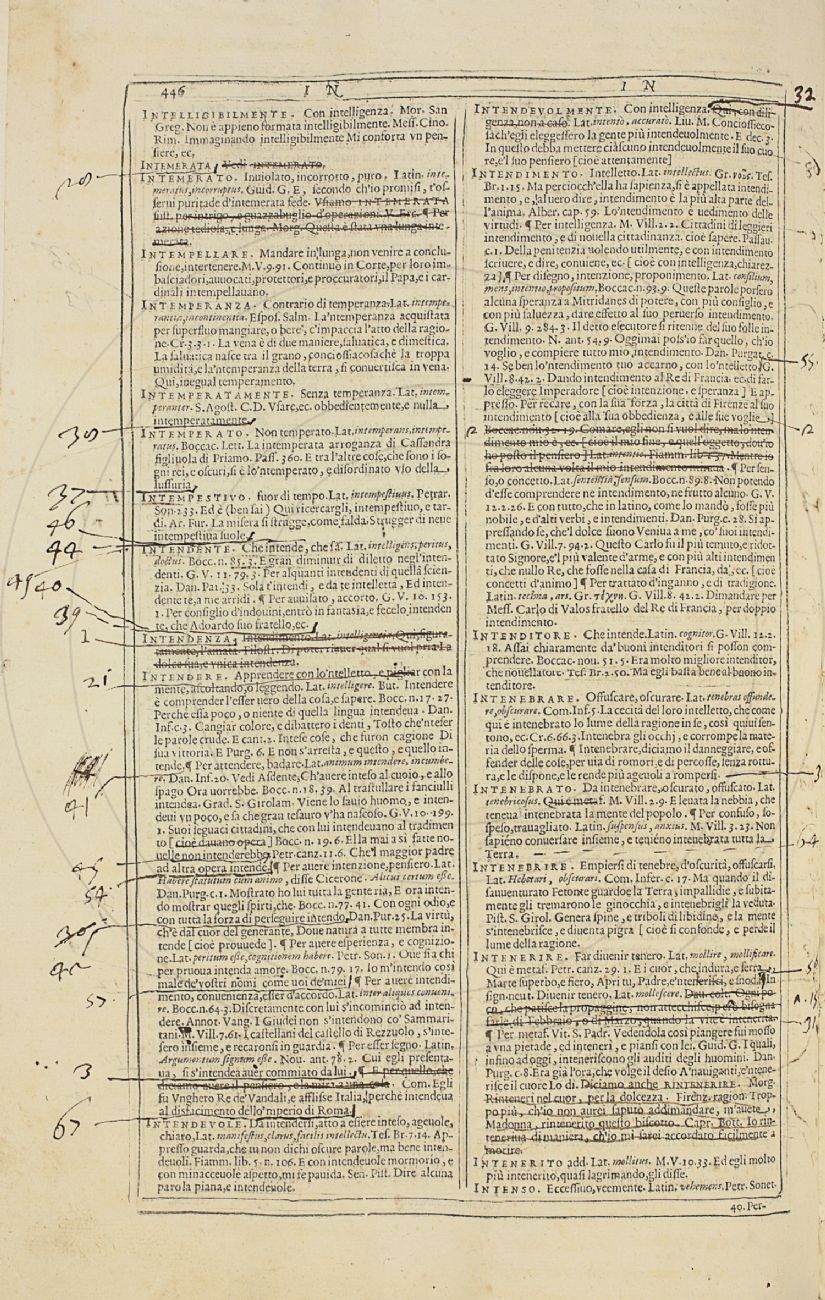 446 I N
INTELLIGIBILMENTE. Con intelligenza. Mor. San
Greg. Non è appieno formata intelligibilmente. Mess. Cino.
Rim. Immaginando intelligibilmente Mi conforta vn pen-
siere, ec.
INTEMERATA, Vedi INTEMERATO.
INTEMERATO. Inuiolato, incorrotto, puro. Latin. inte-
meratus, incorruptus. Guid. G. E, secondo ch'io promisi, t'os-
serui puritade d'intemerata fede. Vsiamo INTEMERATA
sust. per intrigo, o guazzabuglio d'operazioni. V. Erc. ¶ Per
azione tediosa, e lunga. Morg. Questa è stata vna lunga inte-
merata.
INTEMPELLARE. Mandare in lunga, non venire a conclu-
sione, intertenere. M.V.9.91. Continuo in Corte, per loro im-
basciadori, auuocati, protettori, e proccuratori, il Papa, e i car-
dinali intempellauano.
INTEMPERANZA. Contrario di temperanza. Lat. intempe-
rantia, incontinentia. Espos. Salm. La'ntemperanza acquistata
per superfluo mangiare, o bere, c'impaccia l'atto della ragio-
ne. Cr.3.3.1. La vena è di due maniere, saluatica, e dimestica.
La saluatica nasce tra il grano, conciossiacosachè la troppa
umidità, e la'ntemperanza della terra, si conuertisca in vena.
Qui, inegual temperamento.
INTEMPERATAMENTE. Senza temperanza. Lat. intem-
peranter. S. Agost. C.D. Vsare, ec. obbedientemente, e nulla
intemperatamente.
INTEMPERATO. Non temperato. Lat. intemperans, intempe-
ratus. Boccac. Lett. La intemperata arroganza di Cassandra
figliuola di Priamo. Pass. 360. E tra l'altre cose, che sono i so-
gni rei, e oscuri, si è lo'ntemperato, e disordinato vso della
lussuria.
INTEMPESTIVO. fuor di tempo. Lat. intempestiuus. Petrar.
Son.233. Ed è (ben sai) Qui ricercargli, intempestiuo, e tar-
di. Ar. Fur. La misera si stragge, come falda Strugger di neue
intempestita suole.
INTENDENTE. Che intende, che sa. Lat. intelligens, peritus,
doctus. Bocc.n. 85.3. E gran diminuir di diletto negl'inten-
denti. G. V. 11. 79. 3. Per alquanti intendenti di quella scien-
zia. Dan. Par. 33. Sola t'intendi, e da te intelletta, Ed inten-
dente te, a me arridi. ¶ Per auuisato, accorto. G. V. 10. 153.
1. Per consiglio d'indouini, entrò in fantasia, e fecelo intenden
te, che Adoardo suo fratello, ec.
INTENDENZA, Intendimento. Lat. intelligentia. Qui, figura-
tamente, l'amata. Filost. Di poter riauer qual si vuol pria La
dolce sua, e vnica intendenza.
INTENDERE. Apprendere con lo'ntelletto, e pigliar con la
mente, ascoltando, o leggendo. Lat. intelligere. But. Intendere
è comprender l'esser uero della cosa, e sapere. Bocc.n.17.27.
Perchè essa poco, o niente di quella lingua intendeua. Dan.
Inf.c.3. Cangiar colore, e dibattero i denti, Tosto che'nteser
le parole crude. E cant.2. Intese cose, che furon cagione Di
sua vittoria. E Purg. 6. E non s'arresta, e questo, e quello in-
tende. ¶ Per attendere, badare. Lat. animum intendere, incumbe-
re. Dan. Inf.20. Vedi Asdente, Ch'auere inteso al cuoio, e allo
spago Ora uorrebbe. Bocc.n.18.39. Al trastullare i fanciulli
intendea. Grad. S. Girolam. Viene lo sauio huomo, e inten-
deui vn poco, e sa che gran tesauro v'ha nascoso. G.V.10.199.
1. Suoi seguaci cittadini, che con lui intendeuano al tradimen
to [cioè dauano opera] Bocc n. 19.6. Ella mai a sì fatte no-
uelle non intenderebbe. Petr. canz.11.6. Che'l maggior padre
ad altra opera intende. ¶ Per auere intenzione, pensiero. Lat.
Habere statutum cum animo, disse Cicerone. Alicui certum esse.
Dan. Purg.c.1. Mostrato ho lui tutta la gente ria, E ora inten-
do mostrar quegli spirti, che. Bocc.n.77.41. Con ogni odio, e
con tutta la forza di perseguire intendo. Dan. Pur.25. La virtù,
ch'è dal cuor del generante, Doue natura a tutte membra in-
tende [cioè prouuede]. ¶ Per auere esperienza, e cognizio-
ne. Lat. peritum esse, cognitionem habere. Petr. Son.1. Oue sia chi
per pruoua intenda amore. Bocc.n.79. 17. Io m'intendo così
male de'vostri nomi come uoi de'miei. ¶ Per auere intendi-
mento, conuenienza, esser d'accordo. Lat. inter aliques conueni-
re. Bocc.n.64.3. Discretamente con lui s'incominciò ad inten-
dere. Annot. Vang. I Giudei non s'intendono co' Sammari-
tani. M. Vill.7.61. I castellani del castello di Rezzuolo, s'inte-
sero insieme, e recaronsi in guardia. ¶ Per esser segno. Latin.
Argumentum signum esse. Nou. ant. 78.2. Cui egli presenta-
ua, si s'intendea auer commiato da lui. ¶ E per quello, che
diciamo auere il pensiero, e la mira a una cosa. Com. Egli
fu Vnghero Re de'Vandali, e afflisse Italia, perchè intendea
al disfacimento dello'mperio di Roma.
INTENDEVOLE. Da intendersi, atto a essere inteso, ageuole,
chiaro, Lat. manifestus, clarus, facilis intellectu. Tes. Br. 7.14. Ap-
presso guarda, che tu non dichi oscure parole, ma bene inten-
deuoli. Fiamm. lib. 5. n. 106. E con intendeuole mormorio, e
con minacceuole aspetto, mi fe pauida. Sen. Pist. Dire alcuna
parola piana, e intendeuole.
20
30
37
46
44
45 40
39
1
21
41
45
54
305
42
57
3
67
I N 32
INTENDEVOLMENTE. Con intelligenza. Qui, con dili-
genza, non a caso. Lat. intentò, accuratò. Liu. M. Conciossieco-
sach'egli eleggessero la gente più intendeuolmente. E dec. 3.
In questo debba mettere ciascuno intendeuolmente il suo cuo
re, e'l suo pensiero [cioè attentamente]
INTENDIMENTO. Intelletto. Lat. intellectus. Gr. νοῦς. Tes.
Br.1.15. Ma perciocch'ella ha sapienza, si è appellata intendi-
mento, e, al uero dire, intendimento è la più alta parte del-
l'anima. Alber. cap. 59. Lo'ntendimento è uedimento delle
virtudi. ¶ Per intelligenza. M. Vill.2.2. Cittadini di leggieri
intendimento, e di nouella cittadinanza. cioè sapere. Passau.
c.1. Della penitenzia volendo utilmente, e con intendimento
scriuere, e dire, conuiene, ec. [cioè con intelligenza, chiarez-
za]. ¶ Per disegno, intenzione, proponimento. Lat. consilium,
mens, intentio, propositum. Boccac.n.93.9. Queste parole porsero
alcuna speranza a Mitridanes di potere, con più consiglio, e
con più saluezza, dare effetto al suo peruerso intendimento.
G. Vill. 9. 284.3. Il detto esecutore si ritenne del suo folle in-
tendimento. N. ant. 54.9. Oggimai poss'io far quello, ch'io
voglio, e compiere tutto mio intendimento. Dan. Purgat. c.
14. Se ben lo'ntendimento tuo accarno, con lo'ntelletto, G.
Vill. 8.42.2. Dando intendimento al Re di Francia. ec. di far-
lo eleggere Imperadore [cioè intenzione. e speranza] E ap-
presso. Per recare, con la sua forza, la città di Firenze al suo
intendimento [cioè alla sua obbedienza, e alle sue voglie.]
Boccac. nou. 32.19. Comare, egli non si vuol dire, ma lo'nten-
dimento mio è, ec. [cioè il mio fine, e quell'oggetto, dou'io
ho posto il pensiero] Lat. intentio. Fiamm. lib. 1.37. Mentre io
fra loro alcuna volta il mio intendimento miraua. ¶ Per sen-
so, o concetto. Lat. sententia, sensum. Bocc.n.89.8. Non potendo
d'esse comprendere ne intendimento, ne frutto alcuno. G. V.
12.2.26. E con tutto, che in latino, come lo mandò, fosse più
nobile, e d'alti verbi, e intendimenti. Dan. Purg.c. 28. Sì ap-
pressando se, che'l dolce suono Veniua a me, co' suoi intendi-
menti. G. Vill.7.94.2. Questo Carlo fu il più temuto, e ridot-
tato Signore, e'l più valente d'arme, e con più alti intendimen
ti, che nullo Re, che fosse nella casa di Francia, da', ec. [cioè
concetti d'animo] ¶ Per trattato d'inganno, e di tradigione.
Latin. techna, ars. Gr. τέχνη. G. Vill. 8. 42.2. Dimandare per
Mess. Carlo di Valos fratello del Re di Francia, per doppio
intendimento.
INTENDITORE. Che intende. Latin. cognitor. G. Vill. 12.2.
18. Assai chiaramente da' buoni intenditori si posson com-
prendere. Boccac. nou. 51.5. Era molto migliore intenditor,
che nouellatore. Tes. Br. 2.50. Ma egli basta bene al buono in-
tenditore.
INTENEBRARE. Offuscare, oscurare. Lat. tenebras offunde-
re, obscurare. Com. Inf. 5. La cecità del loro intelletto, che come
qui è intenebrato lo lume della ragione in se, così quiui sen-
tono, ec. Cr.6.66.3. Intenebra gli occhj, e corrompe la mate-
ria dello sperma. ¶ Intenebrare, diciamo il danneggiare, e of-
fender delle cose, per uia di romori, e di percosse, senza rottu-
ra, e le dispone, e le rende più ageuoli a rompersi.
INTENEBRATO. Da intenebrare, oscurato, offuscato. Lat.
tenebricosus. Qui è metaf. M. Vill. 2.9. E leuata la nebbia, che
teneua intenebrata la mente del popolo. ¶ Per confuso, so-
speso, trauagliato. Latin. suspensus, anxius. M. Vill. 3.23. Non
sapieno conuersare insieme, e tenieno intenebrata tutta la
Terra.
INTENEBRIRE. Empiersi di tenebre, d'oscurità, offuscarsi,
Lat. Hebetari, obscurari. Com. Infer. c. 17. Ma quando il di-
sauuenturato Fetonte guardoe la Terra, impallidie, e subita-
mente gli tremarono le ginocchia, e intenebrigli la veduta.
Pist. S. Girol. Genera spine, e triboli di libidine, e la mente
s'intenebrisce, e diuenta pigra [cioè si confonde, e perde il
lume della ragione.
INTENERIRE. Far diuenir tenero. Lat. mollire, mollificare.
Qui è metaf. Petr. canz. 29.1. E i cuor, che indura, e serra
Marte superbo, e fiero, Apri tu, Padre, e'ntenerisci, e snoda. In
sign. neut. Diuenir tenero. Lat. mollescere. Dau. colt. Ogni po-
co, che patisce la propaggine, non attecchisce, però bisogna
farle di Febbraio, o di Marzo, quando la vite è intenerita.
¶ Per metaf. Vit. S. Padr. Vedendola così piangere fui mosso
a vna pietade, ed intenerì, e piansi con lei. Guid. G. I quali,
infino ad oggi, inteneriscono gli auditi degli huomini. Dan.
Purg. c.8. Era già l'ora, che volge il desio A'nauiganti, e'ntene-
risce il cuore Lo dì. Diciamo anche RINTENERIRE. Morg.
Rintenerì nel cuor, per la dolcezza. Firenz. ragion. Trop-
po più, ch'io non aurei saputo addimandare, m'auete,
Madonna, rintenerito questo biscotto. Capr. Bott. Io rin-
tenerìua di maniera, ch'io mi sarei accordato facilmente a
morire.
INTENERITO add. Lat. mollitus. M.V.10.33. Ed egli molto
più intenerito, quasi lagrimando, gli disse.
INTENSO. Eccessiuo, veemente. Latin. vehemens. Petr. Sonet.
40. Per-
55
12
12
3
64